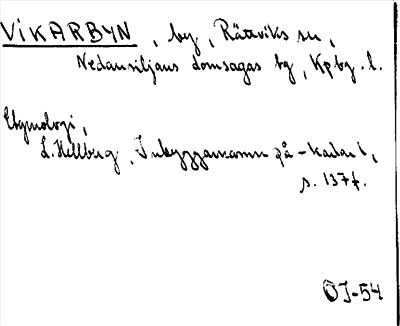 VIKARBYN, by, Rättviks sn,
Nedansiljans domsagas tg, Kpbg. l.
Etymologi,
L. Hellberg, Inbyggarnamn på -karlar,
s. 137 f.
ÖJ-54